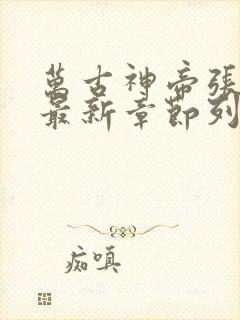 萬古神帝張
最新章節列
痴嗔